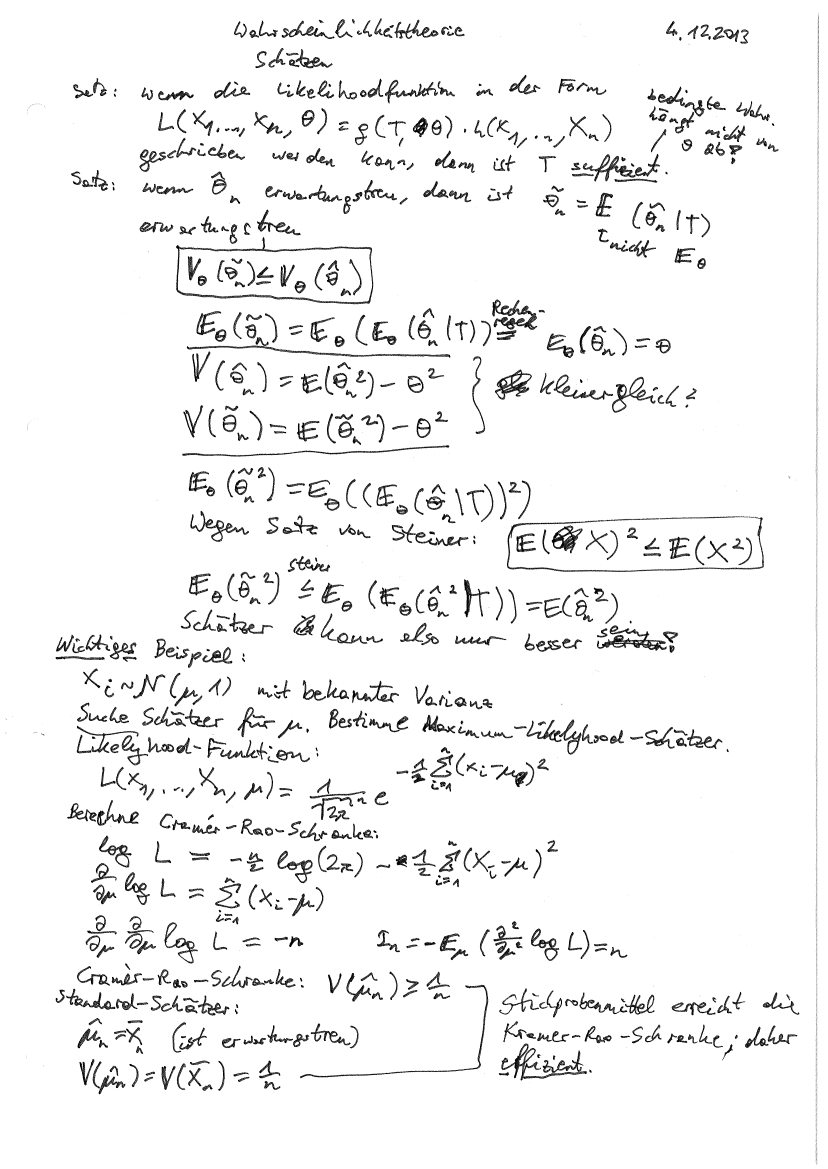 Wahrscheinlichkeitstheorie 4.12.2013
Schätzen
Satz: wenn die Likelihoodfunktion in der Form
L(X₁,..., Xₙ, θ) = g(T, θ) · h(X₁,..., Xₙ)
bedingte Wahr.
hängt nicht von
θ ab!
geschrieben werden kann, dann ist T suffizient.
Satz: wenn θ̂ₙ erwartungstreu, dann ist θ̃ₙ = E (θ̂ₙ|T)
nicht E_θ
erwartungstreu
V_θ(θ̃ₙ) ≤ V_θ(θ̂ₙ)
E_θ(θ̃ₙ) = E_θ(E_θ(θ̂ₙ|T)) = E_θ(θ̂ₙ) = θ
Rechenregel
V(θ̂ₙ) = E(θ̂ₙ²) − θ²
} kleinergleich?
V(θ̃ₙ) = E(θ̃ₙ²) − θ²
E_θ(θ̃ₙ²) = E_θ((E_θ(θ̂ₙ|T))²)
Wegen Satz von Steiner: E(X)² ≤ E(X²)
E_θ(θ̃ₙ²) ≤ E_θ(E_θ(θ̂ₙ²|T)) = E(θ̂ₙ²)
steiner
Schätzer kann also nur besser sein!
Wichtiges Beispiel:
Xᵢ ~ N(μ,1) mit bekannter Varianz
Suche Schätzer für μ. Bestimme Maximum-Likelyhood-Schätzer.
Likelyhood-Funktion:
L(X₁,..., Xₙ, μ) = 1/√(2π)ⁿ e^(−½ Σᵢ₌₁ⁿ (xᵢ−μ)²)
Berechne Cramér-Rao-Schranke:
log L = −n/2 log(2π) − ½ Σᵢ₌₁ⁿ (Xᵢ−μ)²
∂/∂μ log L = Σᵢ₌₁ⁿ (Xᵢ−μ)
∂/∂μ ∂/∂μ log L = −n Iₙ = −E_μ(∂²/∂μ² log L) = n
Cramèr-Rao-Schranke: V(μ̂ₙ) ≥ 1/n
Standard-Schätzer:
μ̂ₙ = X̄ₙ (ist erwartungstreu)
V(μ̂ₙ) = V(X̄ₙ) = 1/n
Stichprobenmittel erreicht die
Kramer-Rao-Schranke; daher
effizient.